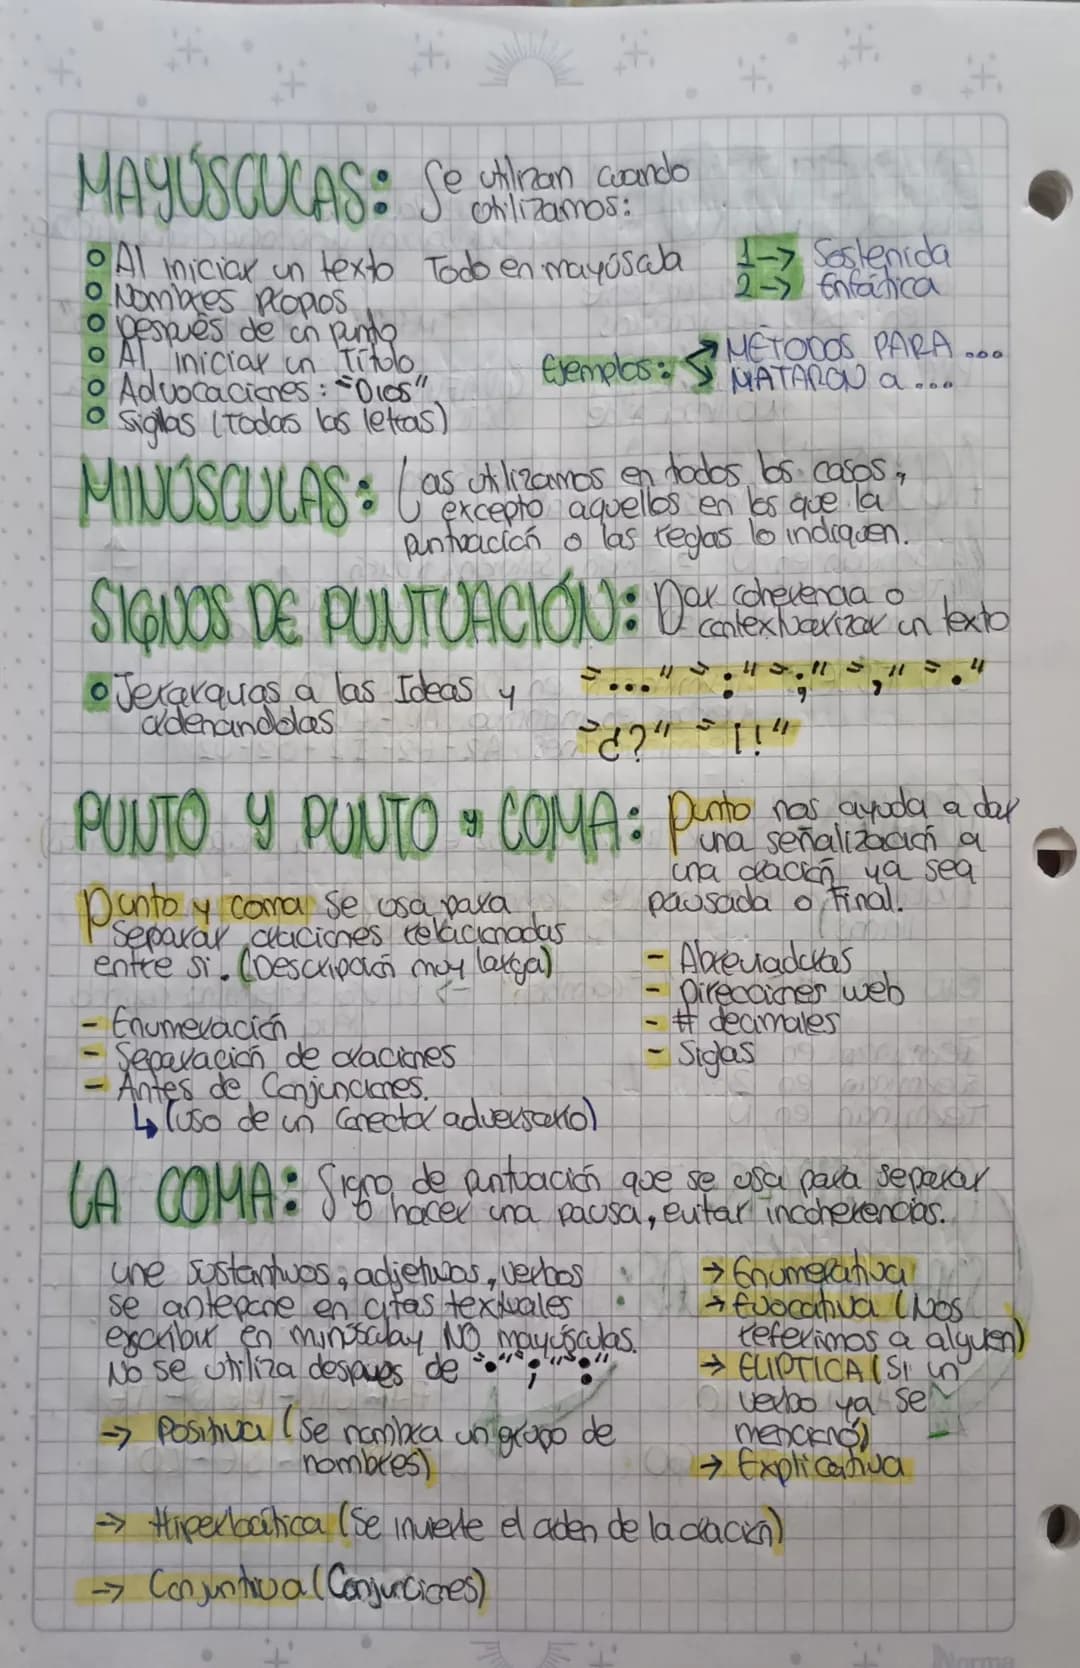 MAYÚSCULAS: Se utilizan cuando
utilizamos:
Al iniciar un texto Todo en mayúscula
1→ Sostenida
2→ Enfática
Nombres propios
Después de un punto
Al iniciar un Título
Ejemplos: METODOS PARA ...
MATARON a ...
Advocaciones: "Dios"
Siglas (Todas las letras)
MINÚSCULAS: Las utilizamos en todos los casos,
excepto aquellos en los que la
puntuación o las reglas lo indiquen.
SIGNOS DE PUNTUACIÓN: Dar coherencia o
contextualizar un texto
Jerarquías a las Ideas y
ordenandolas
"..." ":" ";" "," "."
"¿?" "¡!"
PUNTO Y PUNTO y COMA: Punto nos ayuda a dar
una señalización a
una oración ya sea
pausada o Final.
Punto y coma Se usa para
separar oraciones relacionadas
entre si. (Descripción muy larga)
- Enumeración
- Separación de oraciones
- Antes de Conjunciones.
↳ (uso de un conector adversario)
- Abreviaduras
- Direcciones web
- # decimales
- Siglas
LA COMA: Signo de puntuación que se usa para separar
o hacer una pausa, evitar incoherencias.
une sustantivos, adjetivos, verbos
se antepone en citas textuales
escribir en minúscula y NO mayúsculas.
No se utiliza despues de "." ";" ":"
→ Positiva (Se nombra un grupo de
nombres)
→ Enumerativa
→ Evocativa (Nos
referimos a alguien)
→ ELIPTICA (Si un
verbo ya se
mencionó)
→ Explicativa
→ Hiperbática (Se invierte el orden de la oración)
→ Conjuntiva (Conjunciones)
Norma